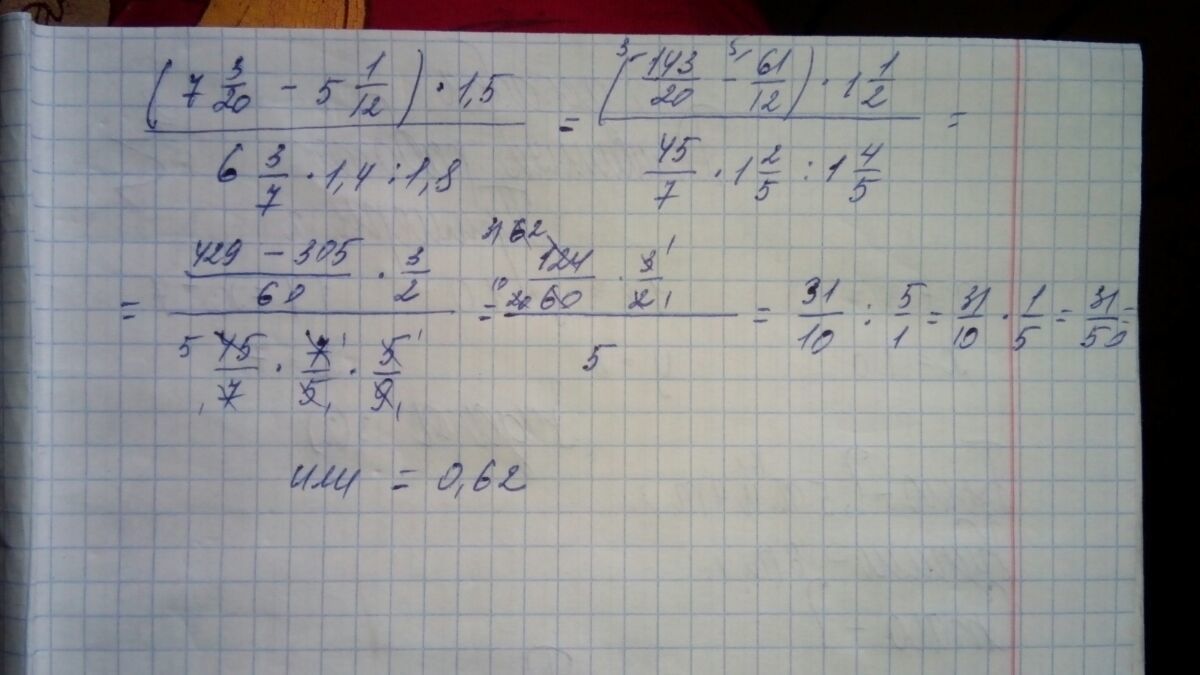 ((7 3/20 − 5 1/12) · 1,5) / (6 3/7 · 1,4 : 1,8) = ((143/20 − 61/12) · 1 1/2) / (45/7 · 1 2/5 : 1 4/5) =
= ((429 − 305)/60 · 3/2) / (45/7 · 7/5 · 5/9) = (124/60 · 3/2) / 5 = 31/10 : 5/1 = 31/10 · 1/5 = 31/50 =
или = 0,62